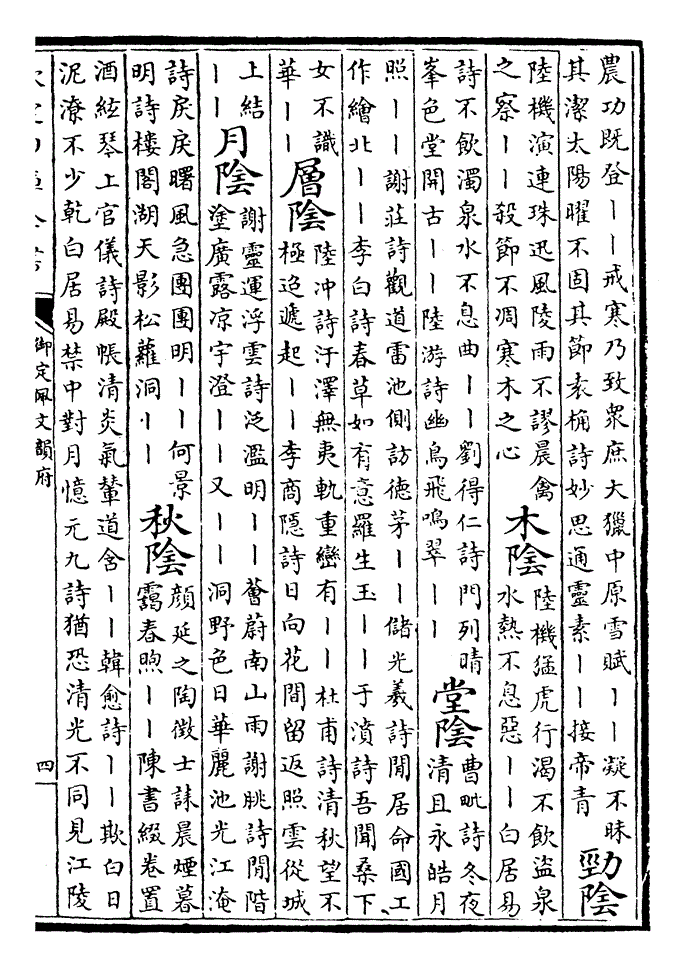 農功既登丨丨戒寒乃致衆庶大獵中原雪賦丨丨凝不昧
其潔太陽曜不固其節袁桷詩妙思通靈素丨丨接帝青
勁陰
陸機演連珠迅風陵雨不謬晨禽
之察丨丨殺節不凋寒木之心
木陰
陸機猛虎行渴不飲盜泉
水熱不息惡丨丨白居易
詩不飲濁泉水不息曲丨丨劉得仁詩門列晴
峯色堂開古丨丨陸游詩幽鳥飛鳴翠丨丨
堂陰
曹毗詩冬夜
清且永皓月
照丨丨謝莊詩觀道雷池側訪德茅丨丨儲光羲詩閒居命國工
作繪北丨丨李白詩春草如有意羅生玉丨丨于濆詩吾聞桑下
女不識
華丨丨
層陰
陸冲詩汙澤無夷軌重巒有丨丨杜甫詩清秋望不
極迢遞起丨丨李商隱詩日向花間留返照雲從城
上結
丨丨
月陰
謝靈運浮雲詩泛濫明丨丨薈蔚南山雨謝脁詩閒階
塗廣露凉宇澄丨丨又丨丨洞野色日華麗池光江淹
詩戾戾曙風急團團明丨丨何景
明詩樓閣湖天影松蘿洞丨丨
秋陰
顔延之陶徵士誄晨煙暮
靄春煦丨丨陳書綴卷置
酒絃琴上官儀詩殿帳清炎氣輦道含丨丨韓愈詩丨丨欺白日
泥潦不少乾白居易禁中對月憶元九詩猶恐清光不同見江陵
御定佩文韻府
四